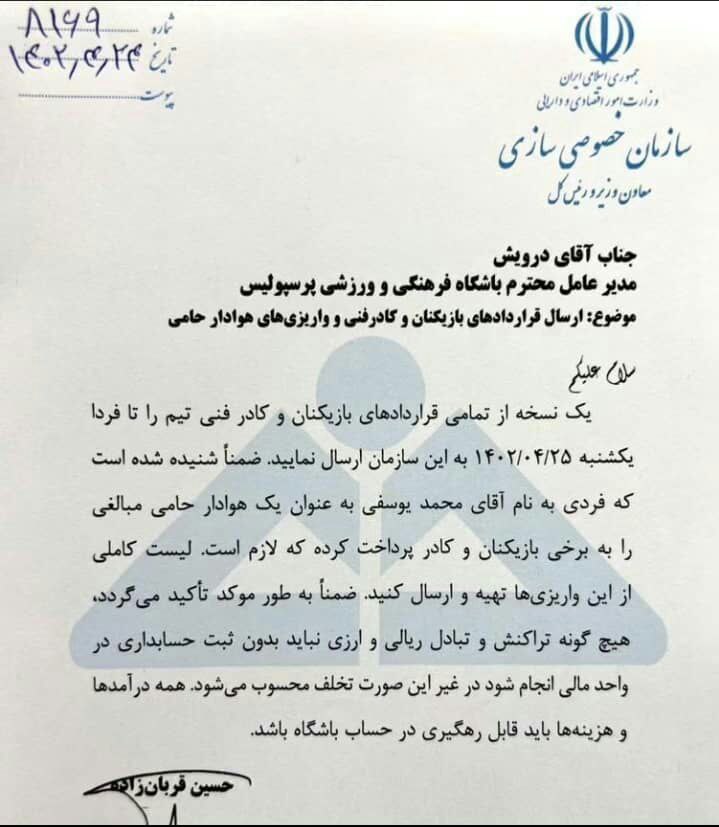 شماره ۸۱۶۹
تاریخ ۱۴۰۲,۴,۲۴
پیوست
جمهوری اسلامی ایران
وزارت امور اقتصادی و دارایی
سازمان خصوصی سازی
معاون وزیر و رئیس کل
جناب آقای درویش
مدیر عامل محترم باشگاه فرهنگی و ورزشی پرسپولیس
موضوع: ارسال قراردادهای بازیکنان و کادرفنی و واریزی‌های هوادار حامی
سلام علیکم
یک نسخه از تمامی قراردادهای بازیکنان و کادر فنی تیم را تا فردا
یکشنبه ۱۴۰۲/۰۴/۲۵ به این سازمان ارسال نمایید. ضمناً شنیده شده است
که فردی به نام آقای محمد یوسفی به عنوان یک هوادار حامی مبالغی
را به برخی بازیکنان و کادر پرداخت کرده که لازم است. لیست کاملی
از این واریزی‌ها تهیه و ارسال کنید. ضمناً به طور موکد تأکید می‌گردد،
هیچ گونه تراکنش و تبادل ریالی و ارزی نباید بدون ثبت حسابداری در
واحد مالی انجام شود در غیر این صورت تخلف محسوب می‌شود. همه درآمدها
و هزینه‌ها باید قابل رهگیری در حساب باشگاه باشد.
حسین قربان‌زاده